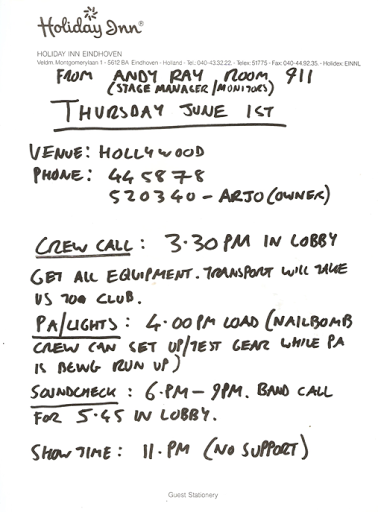 Holiday Inn®
HOLIDAY INN EINDHOVEN
Veldm. Montgomerylaan 1 - 5612 BA Eindhoven - Holland - Tel.: 040-43.32.22. - Telex: 51775 - Fax: 040-44.92.35. - Holidex: EINNL
FROM ANDY RAY ROOM 911
(STAGE MANAGER/MONITORS)
THURSDAY JUNE 1ST
VENUE: HOLLYWOOD
PHONE: 445878
520340 - ARJO (OWNER)
CREW CALL: 3.30 PM IN LOBBY
GET ALL EQUIPMENT. TRANSPORT WILL TAKE
US TOO CLUB.
PA/LIGHTS: 4.00PM LOAD (NAILBOMB
CREW CAN SET UP/TEST GEAR WHILE PA
IS BEING RUN UP)
SOUNDCHECK: 6.PM - 9PM. BAND CALL
FOR 5.45 IN LOBBY.
SHOWTIME: 11.PM (NO SUPPORT)
Guest Stationery